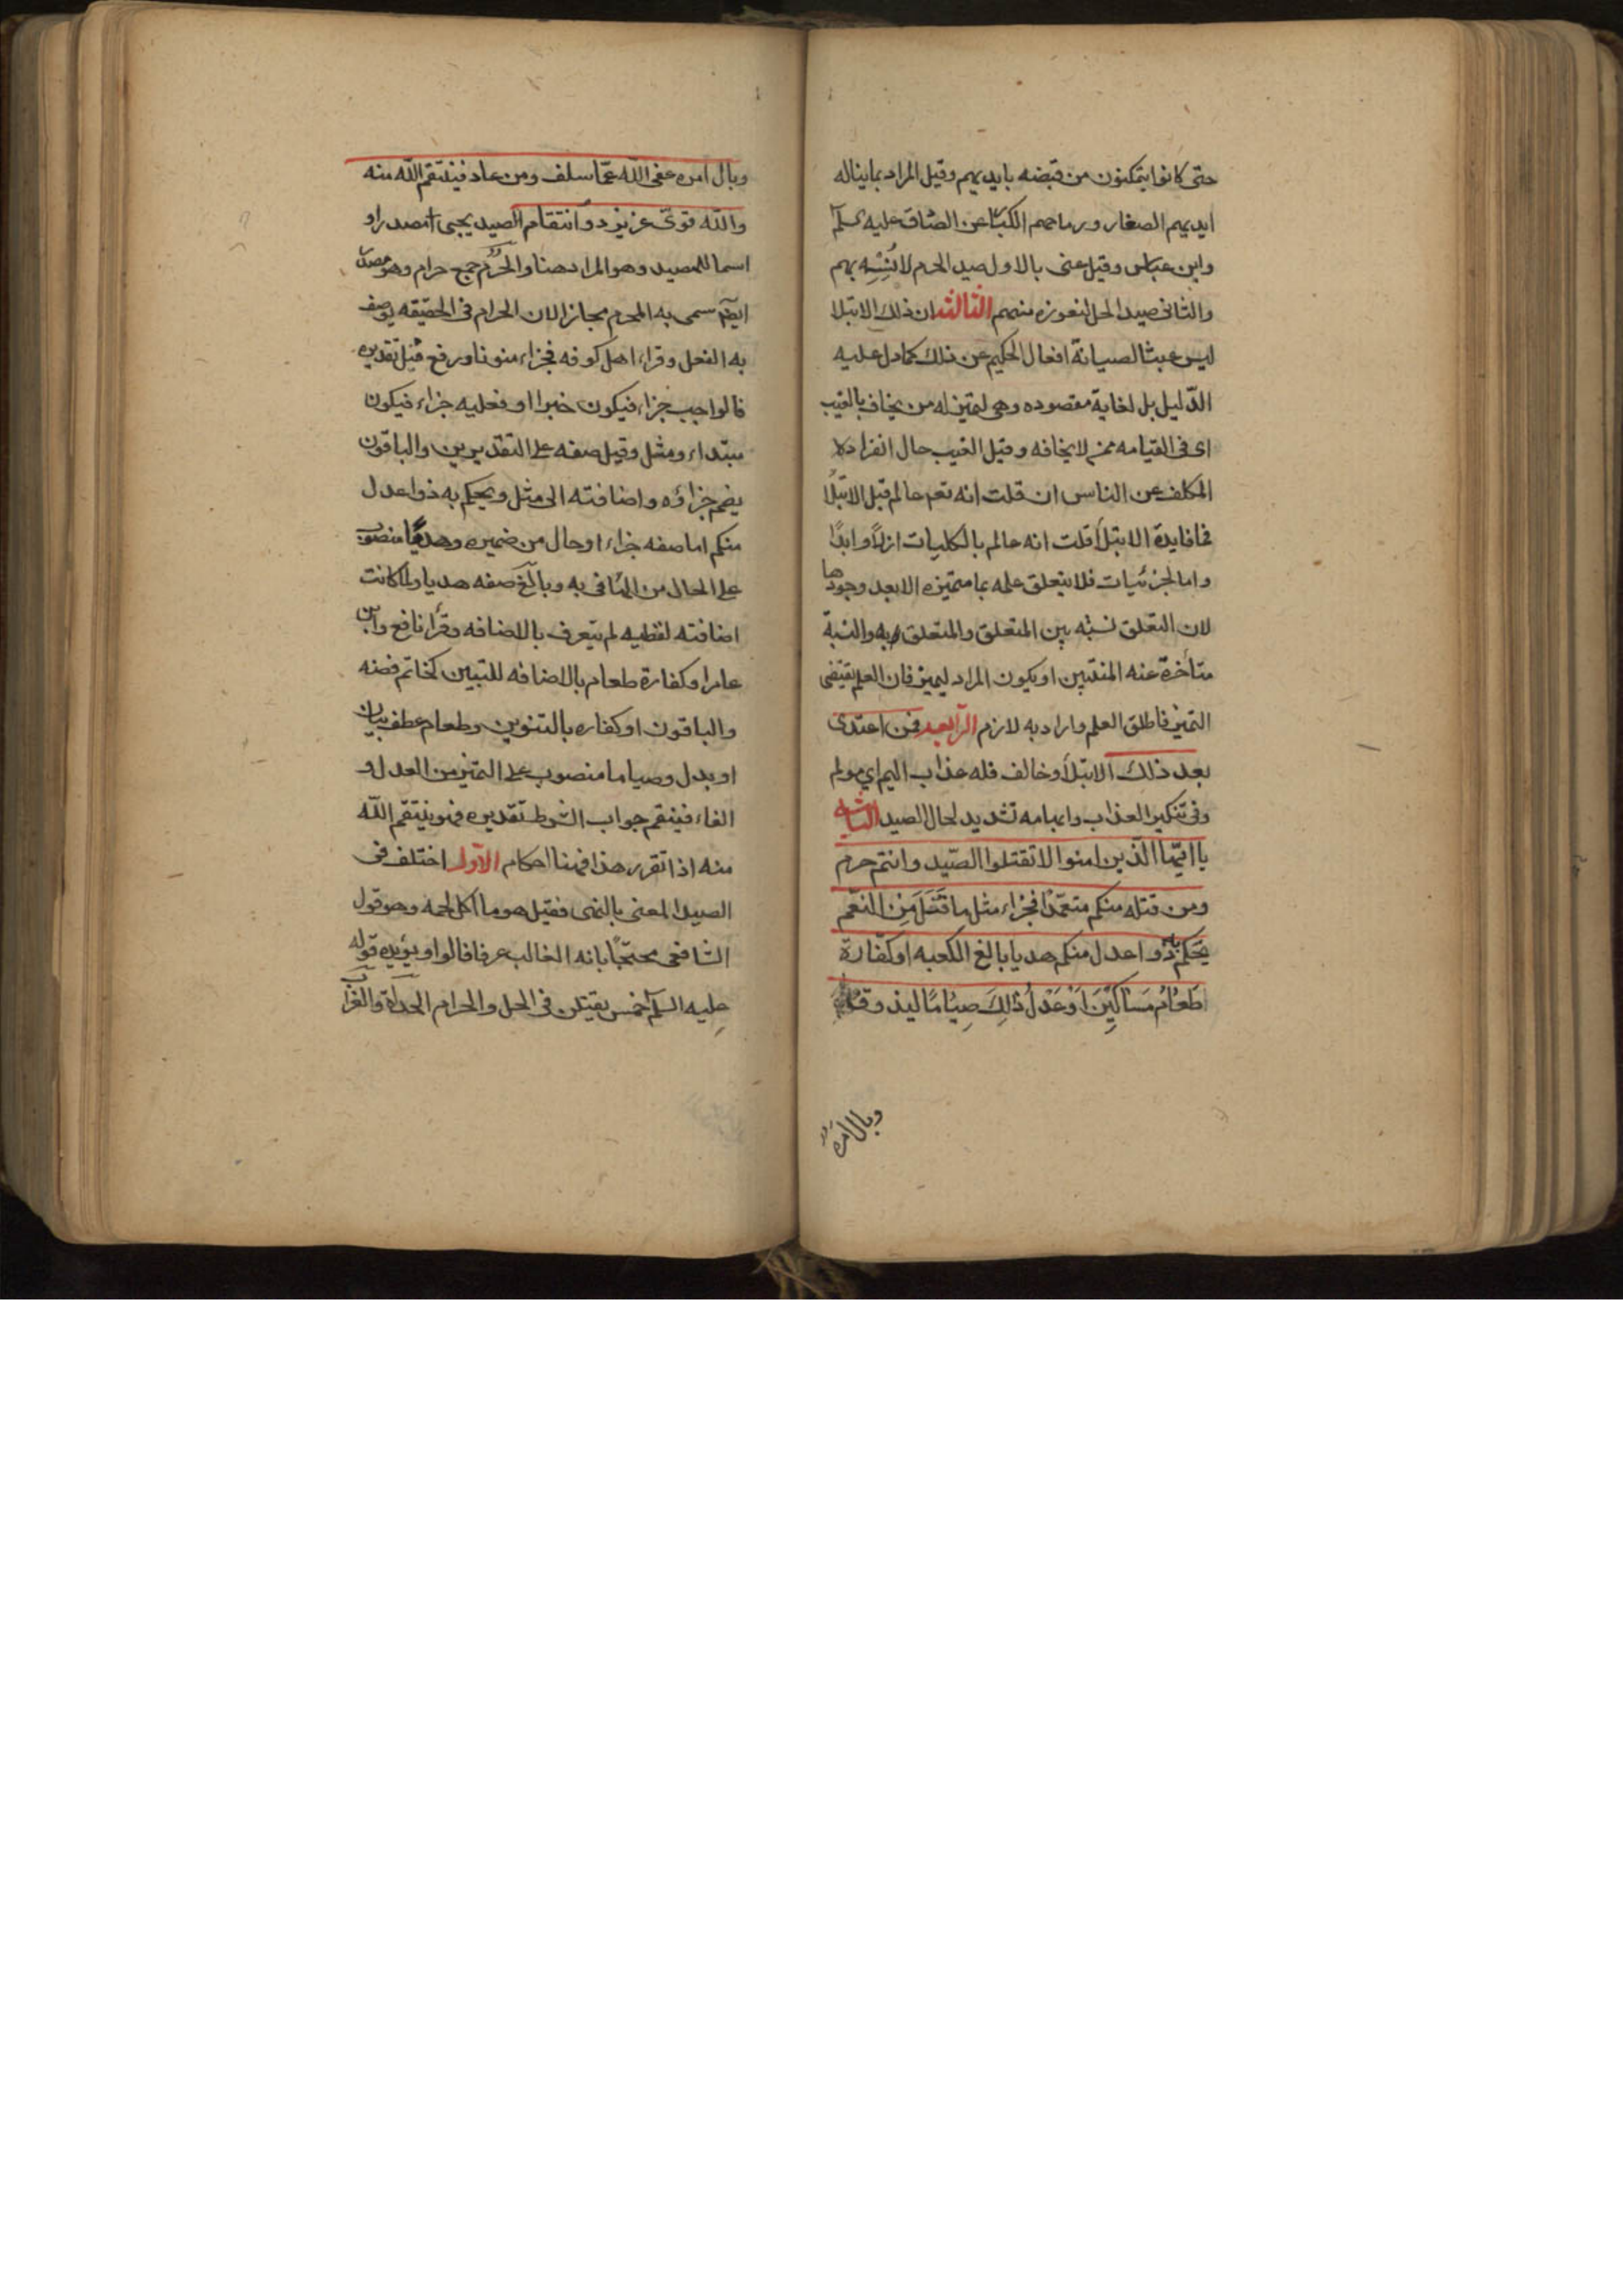 حتى كانوا يتمكنون من قبضه بايديهم وقيل المراد بما يناله
ايديهم الصغار ورماحهم الكبار عن الصادق عليه السلم
وابن عباس وقيل عنى بالاول صيد الحرم لانسه بهم
والثانى صيد الحل لنفوره منهم الثالث ان ذلك الابتلا
ليس عبثا لصيانة افعال الحكيم عن ذلك كما دل عليه
الدّليل بل لغاية مقصوده وهى لتميز له من يخاف بالغيب
اى فى القيامه ممن لا يخافه وقيل الغيب حال انفراد
المكلف عن الناس ان قلت انه تعم عالم قبل الابتلا
فما فايدة الابتلأ قلت انه عالم بالكليات ازلاً وابدًا
واما الجزئيات فلا يتعلق علمه بما متميزه الا بعد وجودها
لان التعلق نسبه بين المتعلق والمتعلق به والنسبة
متأخرة عنه المنتسبين او يكون المراد ليميز فان العلم يقتضى
التميز فاطلق العلم واراد به لازم الرّابعه فمن اعتدى
بعد ذلك الابتلأ وخالف فله عذاب اليم اي مولم
وفى تنكير العذاب وابهامه تشديد لحال الصيد الثانيه
يا ايّها الّذين امنوا لا تقتلوا الصّيد وانتم حرم
ومن قتله منكم متعمّدًا فجزاء مثل ما قَتَلَ مِنَ النعَم
يَحْكم به ذوا عدل منكم هديا بالغ الكعبه او كفّارة
طَعَامُ مَسَاكِيْنَ اَوْ عَدْلُ ذٰلِكَ صِيَامًا ليذوق
وبال امره
وبال امره عفى الله عمّا سلف ومن عاد فينتقم اللّه منه
واللّه قوىّ عزيز ذو انتقام الصيد يجيى تم مصدرا و
اسما للمصيد وهو المراد هنا والحُرُم جمع حرام وهو مصدر
ايضم سمى به المحرم مجازا لان الحرام فى الحقيقه يوصف
به الفعل وقراء اهل كوفه فجزاء منونا ورفع مثل تقديره
فالواجب جزاء فيكون خبرا او فعليه جزاء فيكون
مبتداء ومثل وقيل صفه على التقديرين والباقون
بضم جزاؤه واضافته الى مثل ويحكم به ذوا عدل
منكم اما صفه جزاء او حال من ضميره وهديًا منصوب
على الحال من الهآ فى به وبالغ صفه هديا ولما كانت
اضافته لفظيه لم يتعرف بالاضافه وقرأ نافع وابن
عامر او كفارة طعام بالاضافه للتبيين كخاتم فضه
والباقون او كفاره بالتنوين وطعام عطف بيان
او بدل وصياما منصوب على التميز من العدل و
الفاء فينتقم جواب الشرط تقديره فهو ينتقم اللّه
منه اذا تقرر هذا فهنا احكام الاوّل اختلف فى
الصيد المعنى بالنهى فقيل هو ما اكل لحمه وهو قول
الشافعى محتجًا بانه الغالب عرفا قالوا ويؤيده قوله
عليه السلم خمس يقتلن فى الحل والحرام الحدأة والغراب